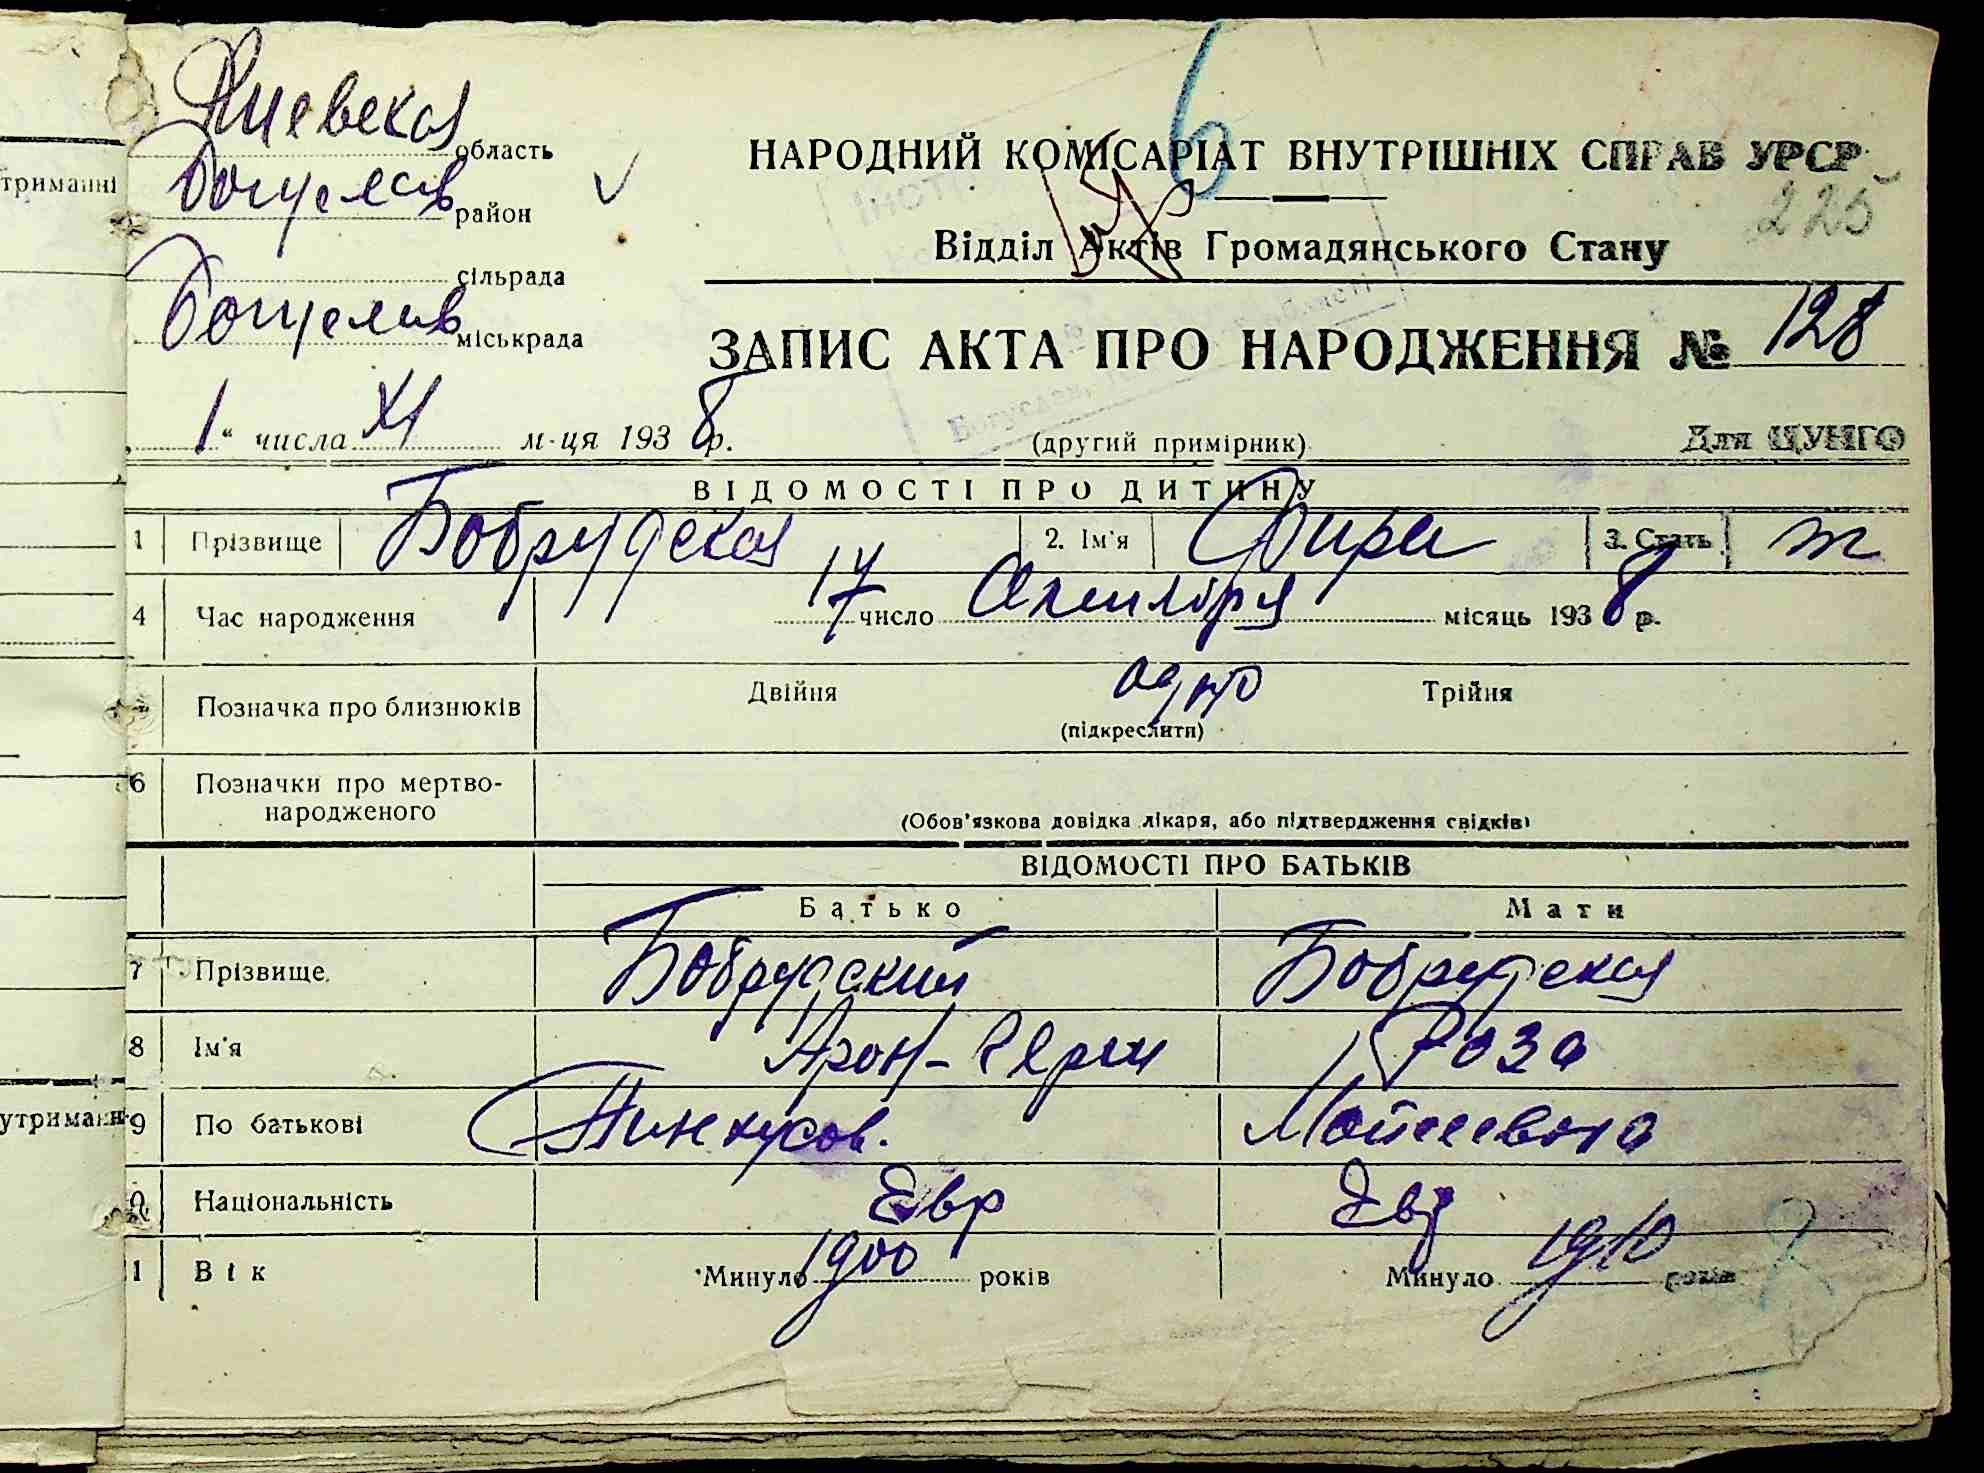 Киевская область
Богуслав район
сільрада
Богуслав міськрада
6
НАРОДНИЙ КОМІСАРІАТ ВНУТРІШНІХ СПРАВ УРСР
225
Відділ Актів Громадянського Стану
ЗАПИС АКТА ПРО НАРОДЖЕННЯ № 128
1 " числа XI м-ця 1938 р.
(другий примірник)
Для ЦУНГО
ВІДОМОСТІ ПРО ДИТИНУ
1 Прізвище Бобрудская 2. Ім'я Фира 3. Стать ж
4 Час народження 17 число Октября місяць 1938 р.
Позначка про близнюків Двійня одно Трійня
(підкреслити)
6 Позначки про мертво-
народженого
(Обов'язкова довідка лікаря, або підтвердження свідків)
ВІДОМОСТІ ПРО БАТЬКІВ
Батько Мати
7 Прізвище Бобрудский Бобрудская
8 Ім'я Арон- Роза
9 По батькові Пинхусов. Мойсеевна
0 Національність Евр Евр
1 Вік Минуло 1900 років Минуло 1910 років
триманні
утриманн